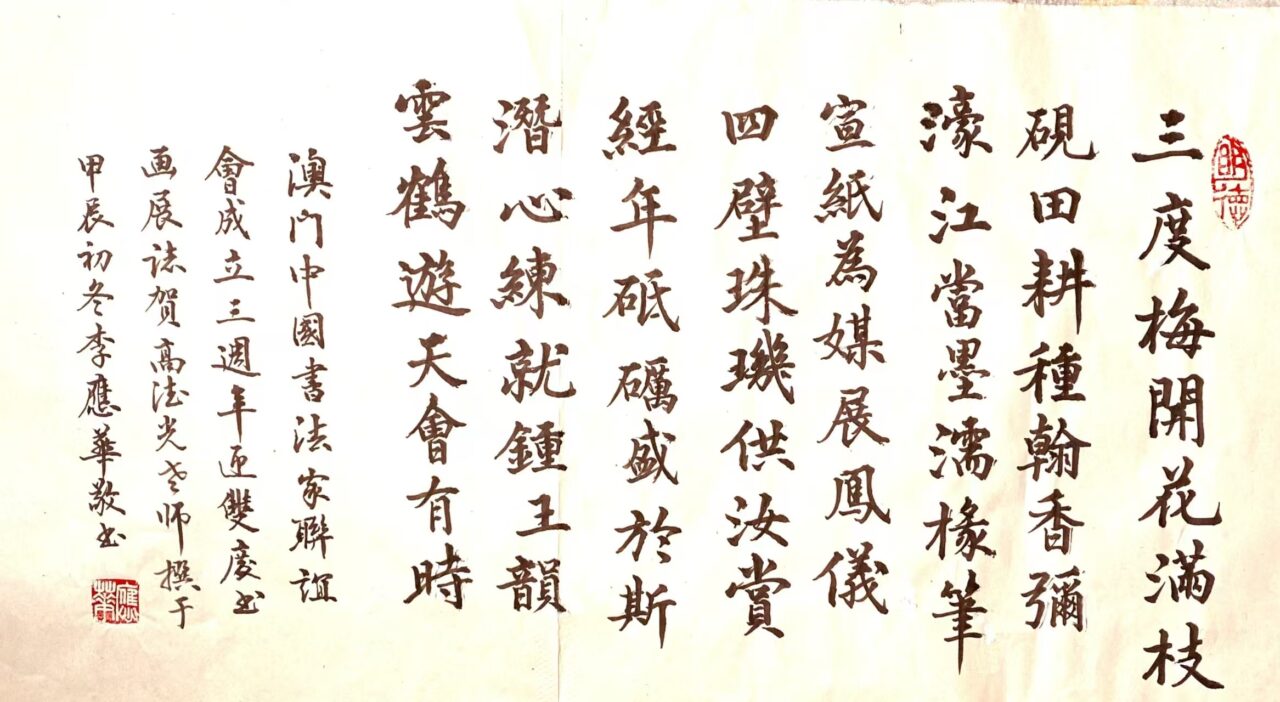 三度梅開花滿枝
硯田耕種翰香彌
濠江當墨濡椽筆
宣紙為媒展鳳儀
四壁珠璣供汝賞
經年砥礪盛於斯
潛心練就鍾王韻
雲鶴遊天會有時
澳门中國書法家聯誼
會成立三週年迎雙慶书
画展誌賀高德光老师撰于
甲辰初冬李應華敬书
明德
應華